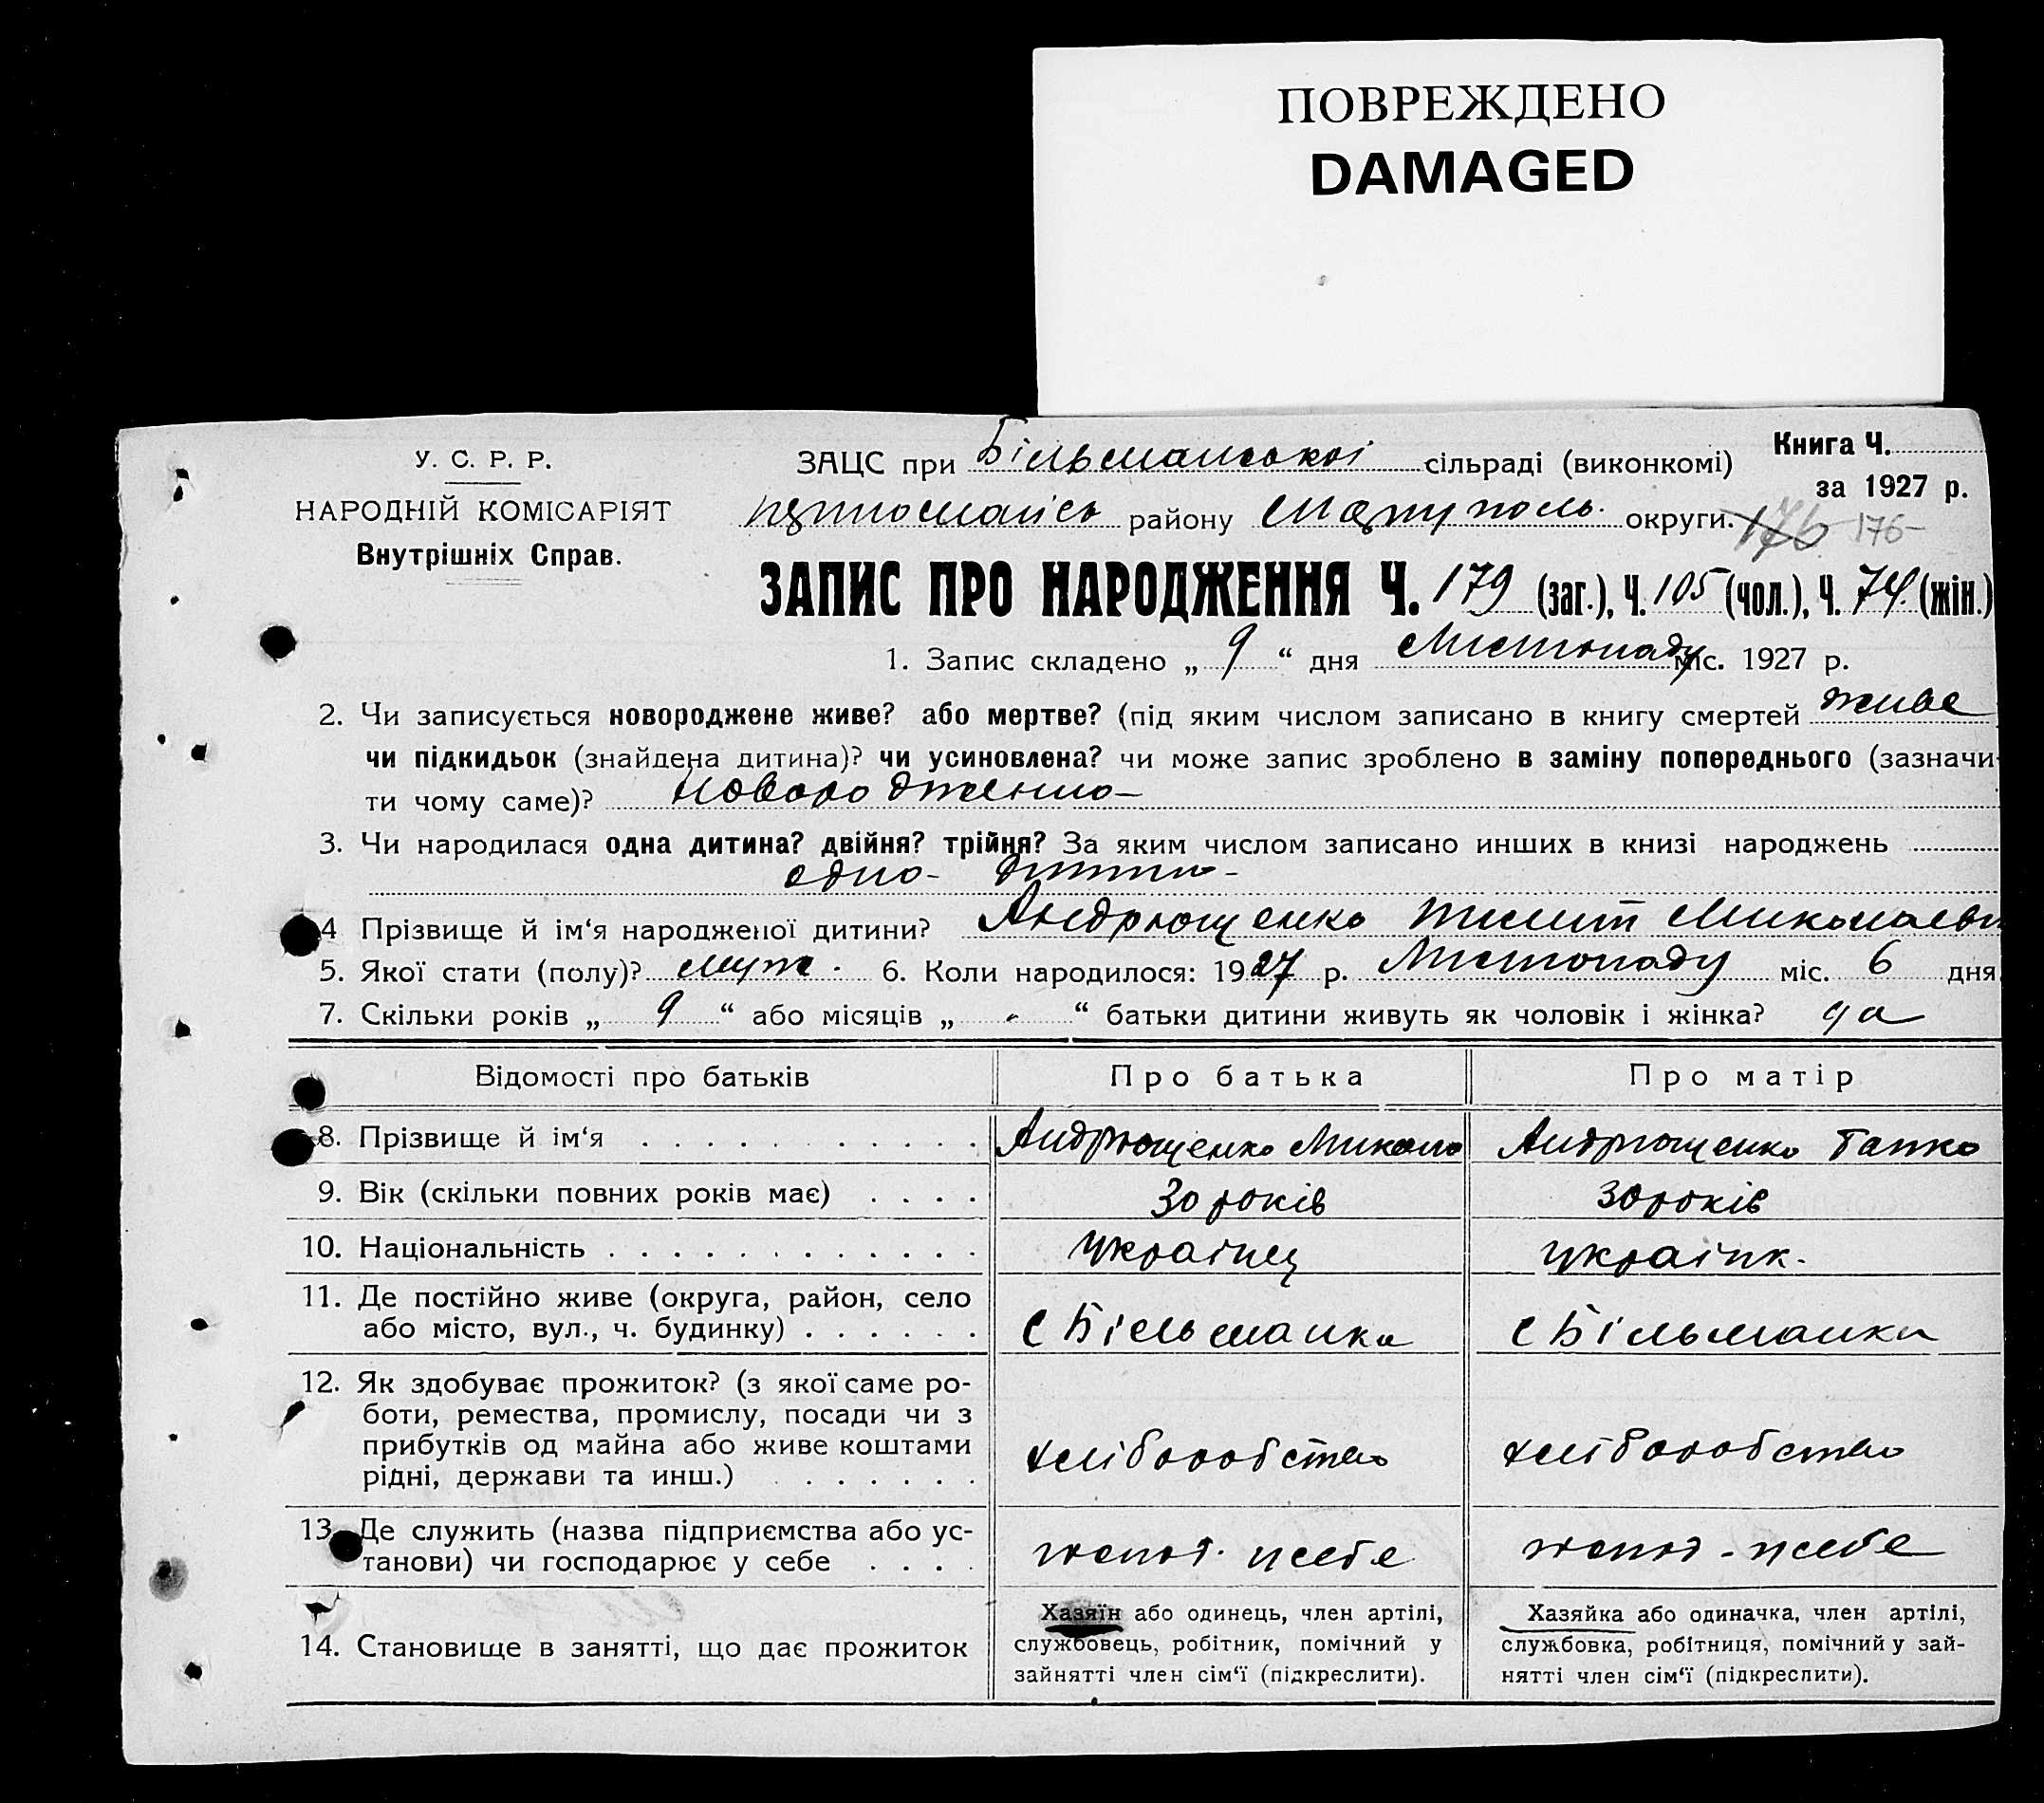 ПОВРЕЖДЕНО
DAMAGED
У. С. Р. Р.
НАРОДНІЙ КОМІСАРІЯТ
Внутрішніх Справ.
ЗАЦС при Більманської сільраді (виконкомі)
Книга Ч.
за 1927 р.
району Маріуполь. округи. 176 176-
ЗАПИС ПРО НАРОДЖЕННЯ Ч. 179 (заг.), Ч. 105 (чол.), Ч. 74. (жін.)
1. Запис складено „ 9 “ дня Листопаду міс. 1927 р.
2. Чи записується новороджене живе? або мертве? (під яким числом записано в книгу смертей живе
чи підкидьок (знайдена дитина)? чи усиновлена? чи може запис зроблено в заміну попереднього (зазначи-
ти чому саме)? новородженно-
3. Чи народилася одна дитина? двійня? трійня? За яким числом записано инших в книзі народжень
одно- дитино-
4 Прізвище й ім‘я народженої дитини? Андрющенко Миколаєви
5. Якої стати (полу)? муж. 6. Коли народилося: 1927 р. Листопаду міс. 6 дня
7. Скільки років „ 9 “ або місяців „ - “ батьки дитини живуть як чоловік і жінка? да
Відомості про батьків Про батька Про матір
8. Прізвище й ім‘я Андрющенко Микола Андрющенко Гапка
9. Вік (скільки повних років має) 30 років 30 років
10. Національність Україnец українк.
11. Де постійно живе (округа, район, село
або місто, вул., ч. будинку) с Більманка с Більманка
12. Як здобуває прожиток? (з якої саме ро-
боти, ремества, промислу, посади чи з
прибутків од майна або живе коштами
рідні, держави та инш.) хліборобство хліборобство
13. Де служить (назва підприємства або ус-
танови) чи господарює у себе у себе у себе
14. Становище в занятті, що дає прожиток
Хазяїн або одинець, член артілі,
службовець, робітник, помічний у
зайнятті член сім‘ї (підкреслити).
Хазяйка або одиначка, член артілі,
службовка, робітниця, помічний у зай-
нятті член сім‘ї (підкреслити).